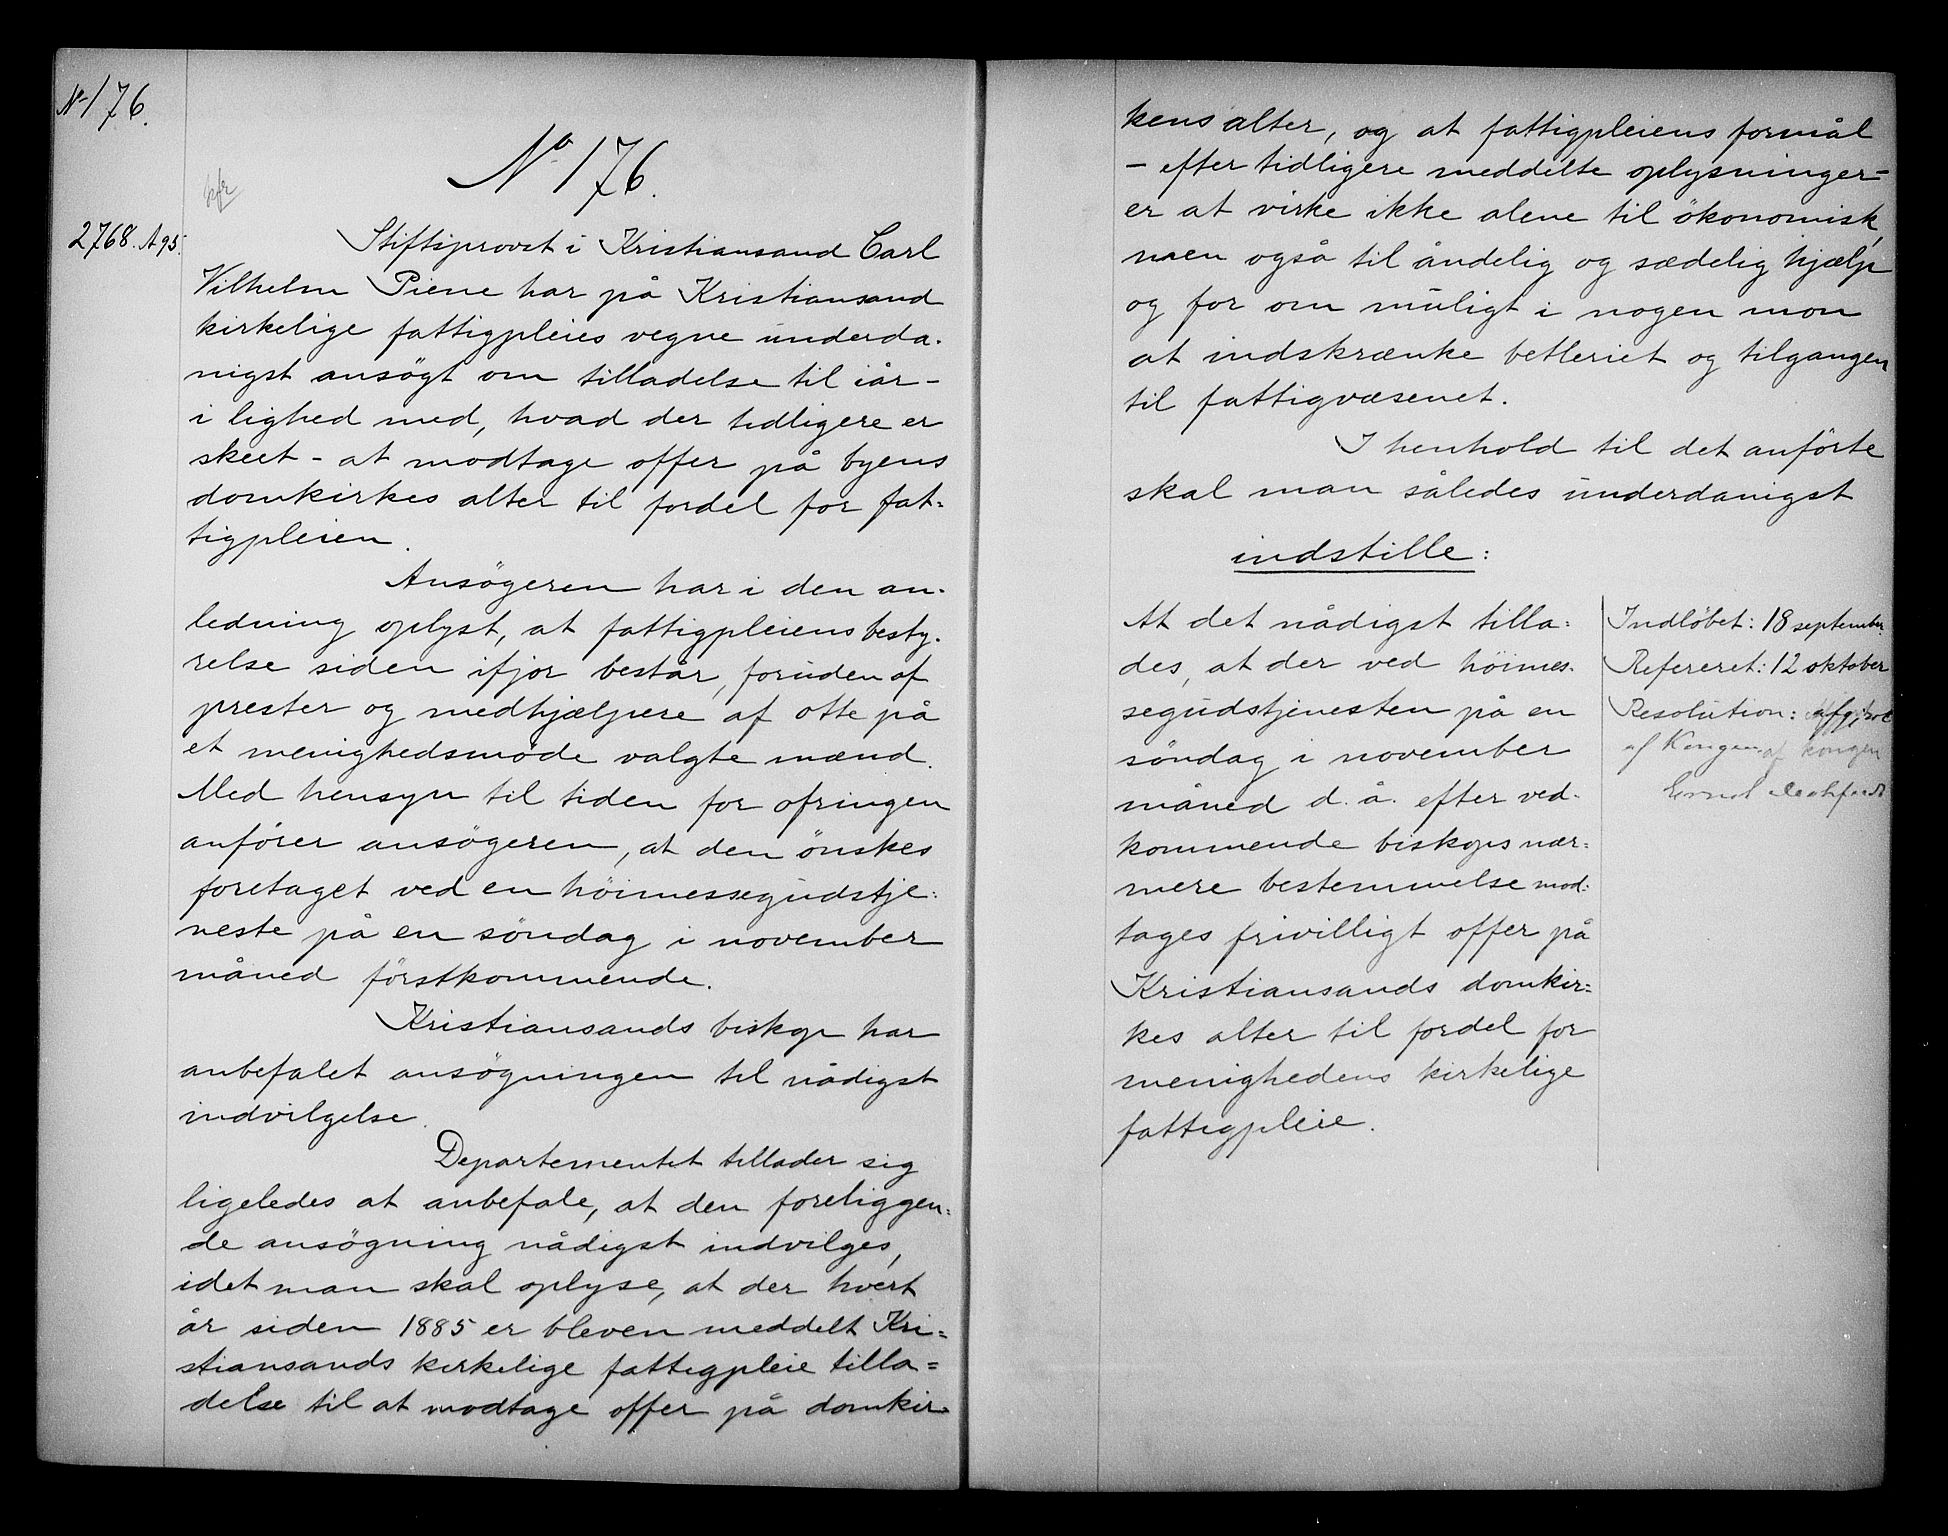 No 176.
No 176.
2768. A 95.
Stiftsprovst i Kristiansand Carl
Vilhelm Piene har på Kristiansand
kirkelige fattigpleies vegne underda-
nigst ansögt om tilladelse til iår -
i lighed med, hvad der tidligere er
skeet - at modtage offer på byens
domkirkes alter til fordel for fat-
tigpleien.
Ansögeren har i den an-
ledning oplyst, at fattigpleiens besty-
relse siden ifjor består, foruden af
prester og medhjælpere af otte på
et menighedsmöde valgte mænd.
Med hensyn til tiden for ofringen
anförer ansögeren, at den önskes
foretaget ved en höimessegudstje-
neste på en söndag i november
måned förstkommende.
Kristiansands biskop har
anbefalet ansögningen til nådigst
indvilgelse.
Departementet tillader sig
ligeledes at anbefale, at den foreliggen-
de ansögning nådigst indvilges,
idet man skal oplyse, at der hvert
år siden 1885 er bleven meddelt Kri-
stiansands kirkelige fattigpleie tilla-
delse til at modtage offer på domkir-
kens alter, og at fattigpleiens formål
- efter tidligere meddelte oplysninger -
er at virke ikke alene til ökonomisk,
men også til åndelig og sædelig hjælp
og for om muligt i nogen mon
at indskrænke betleriet og tilgangen
til fattigvæsenet.
I henhold til det anförte
skal man således underdanigst
indstille:
At det nådigst tilla-
des, at der ved höimes-
segudstjenesten på en
söndag i november
måned d. å. efter ved-
kommende biskops nær-
mere bestemmelse mod-
tages frivilligt offer på
Kristiansands domkir-
kes alter til fordel for
menighedens kirkelige
fattigpleie.
Indlöbet: 18 september
Refereret: 12 oktober
Resolution:
af Kongen af kongen